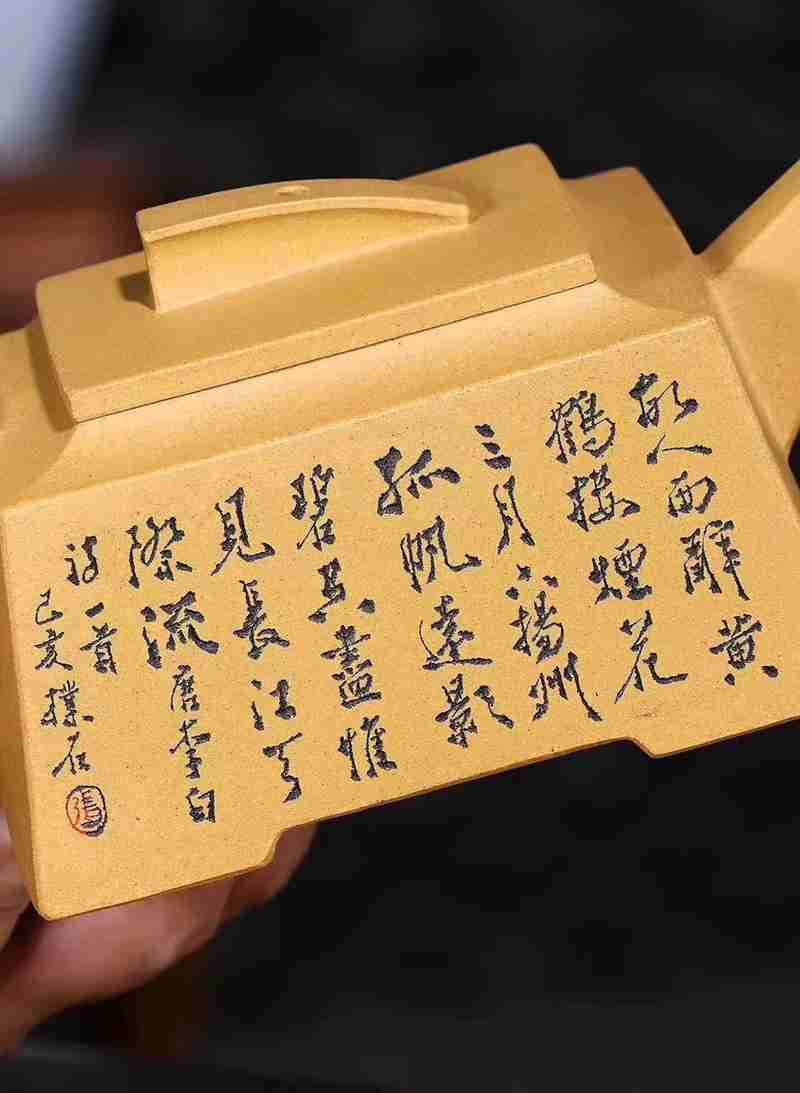 故人西辭黃
鶴樓煙花
三月下揚州
孤帆遠影
碧空盡惟
見長江天
際流唐李白
詩一首
己亥樸石
張